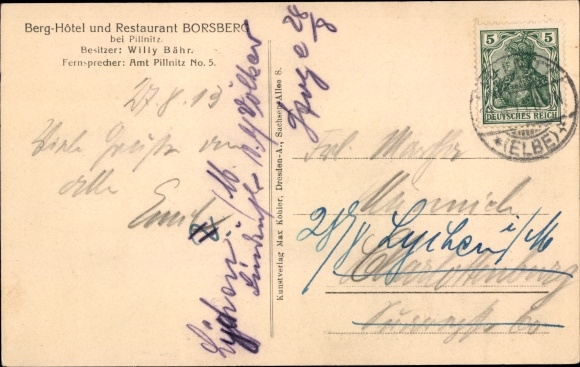 Berg-Hôtel und Restaurant BORSBERG
bei Pillnitz.
Besitzer: Willy Bähr.
Fernsprecher: Amt Pillnitz No. 5.
27/8 13
Viele Grüße an
alle
Emil
Lychen i/M.
28/8
Kunstverlag Max Köhler, Dresden-A., Sachsen-Allee 8.
5 5
DEUTSCHES REICH
(ELBE)
Frl. Martha
28/8 Lychen i/M
Charlottenburg
60